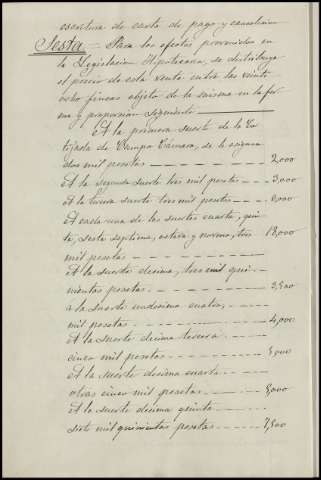 escritura de carta de pago y cancelacion
Sesta = Para los efectos prevenidos en
la Legislacion Hipotecaria, se distribuye
el precio de esta venta entre las veinte
ocho fincas objeto de la misma en la for
ma y proporcion siguiente
A la primera suerte de la Co
tejada de Campo Cámara, se le asigna
dos mil pesetas 2,000
A la segunda suerte tres mil pesetas 3,000
A la tercera suerte tres mil pesetas 3,000
A cada una de las suertes cuarta, quin
ta, sesta septima, octava y novena, tres 18,000
mil pesetas
A la suerte decima, tres mil qui
nientas pesetas 3,500
a la suerte undecima cuatro
mil pesetas 4,000
A la suerte decima tercera
cinco mil pesetas 5,000
A la suerte decima cuarta
otras cinco mil pesetas 5,000
A la suerte decima quinta
siete mil quinientas pesetas 7,500